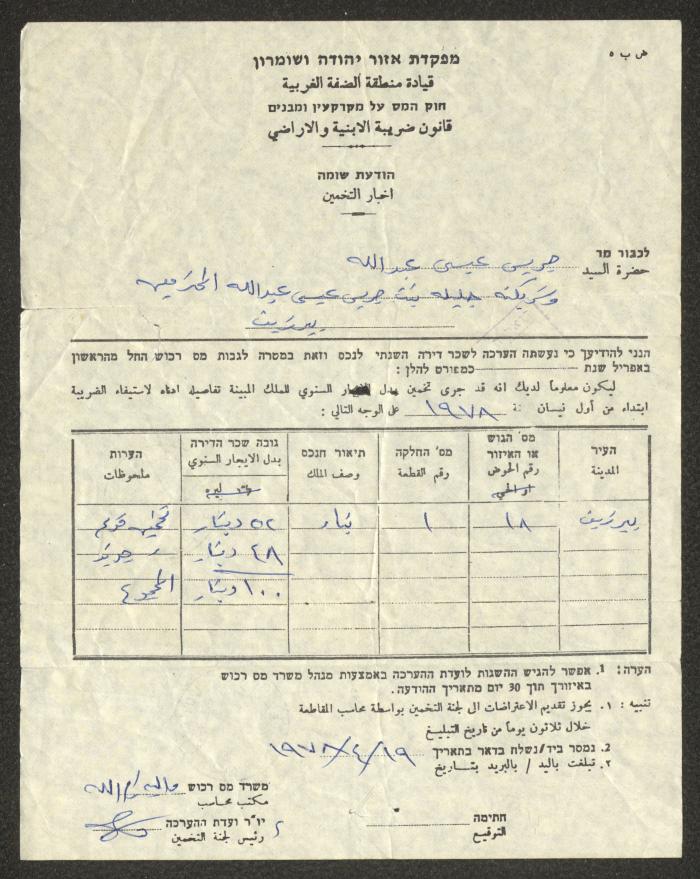 ض ب ٥
מפקדת אזור יהודה ושומרון
قيادة منطقة الضفة الغربية
חוק המס על מקרקעין ומבנים
قانون ضريبة الابنية والاراضي
הודעת שומה
اخبار التخمين
לכבור מר
حضرة السيد جريس عيسى عبدالله
وشريكته جليله بنت جريس عيسى عبدالله
بيرزيت
הנני להודיעך כי נעשתה הערכה לשכר דירה השנתי לנכס וזאת במטרה לגבות מס רכוש החל מהראשון
באפריל שנת כמפורט להלן:
ليكون معلوماً لديك انه قد جرى تخمين بدل الايجار السنوي للملك المبينة تفاصيله ادناه لاستيفاء الضريبة
ابتداء من أول نيسان سنة ١٩٧٨ على الوجه التالي:
העיר מס' הגוש מס' החלקה תיאור הנכס גובה שכר הדירה הערות
או האיזור
المدينة رقم الحوض رقم القطعة وصف الملك بدل الايجار السنوي ملحوظات
او الحي ليره
بيرزيت ١٨ ١ بناء ٥٢ دينار تخمين قديم
٤٨ دينار جديد
١٠٠ دينار المجموع
הערה: 1. אפשר להגיש השגות לועדת ההערכה באמצעות מנהל משרד מס רכוש
באיזורך תוך 30 יום מתאריך ההודעה.
تنبيه: ١. يجوز تقديم الاعتراضات الى لجنة التخمين بواسطة محاسب المقاطعة
خلال ثلاثون يوماً من تاريخ التبليغ
2. נמסר ביד/נשלח בדאר בתאריך ١٩٧٨/٤/١٩
٢. تبلغت باليد / بالبريد بتاريخ
משרד מס רכוש
مكتب محاسب رام الله
חתימה
التوقيع
יו"ר ועדת ההערכה
رئيس لجنة التخمين